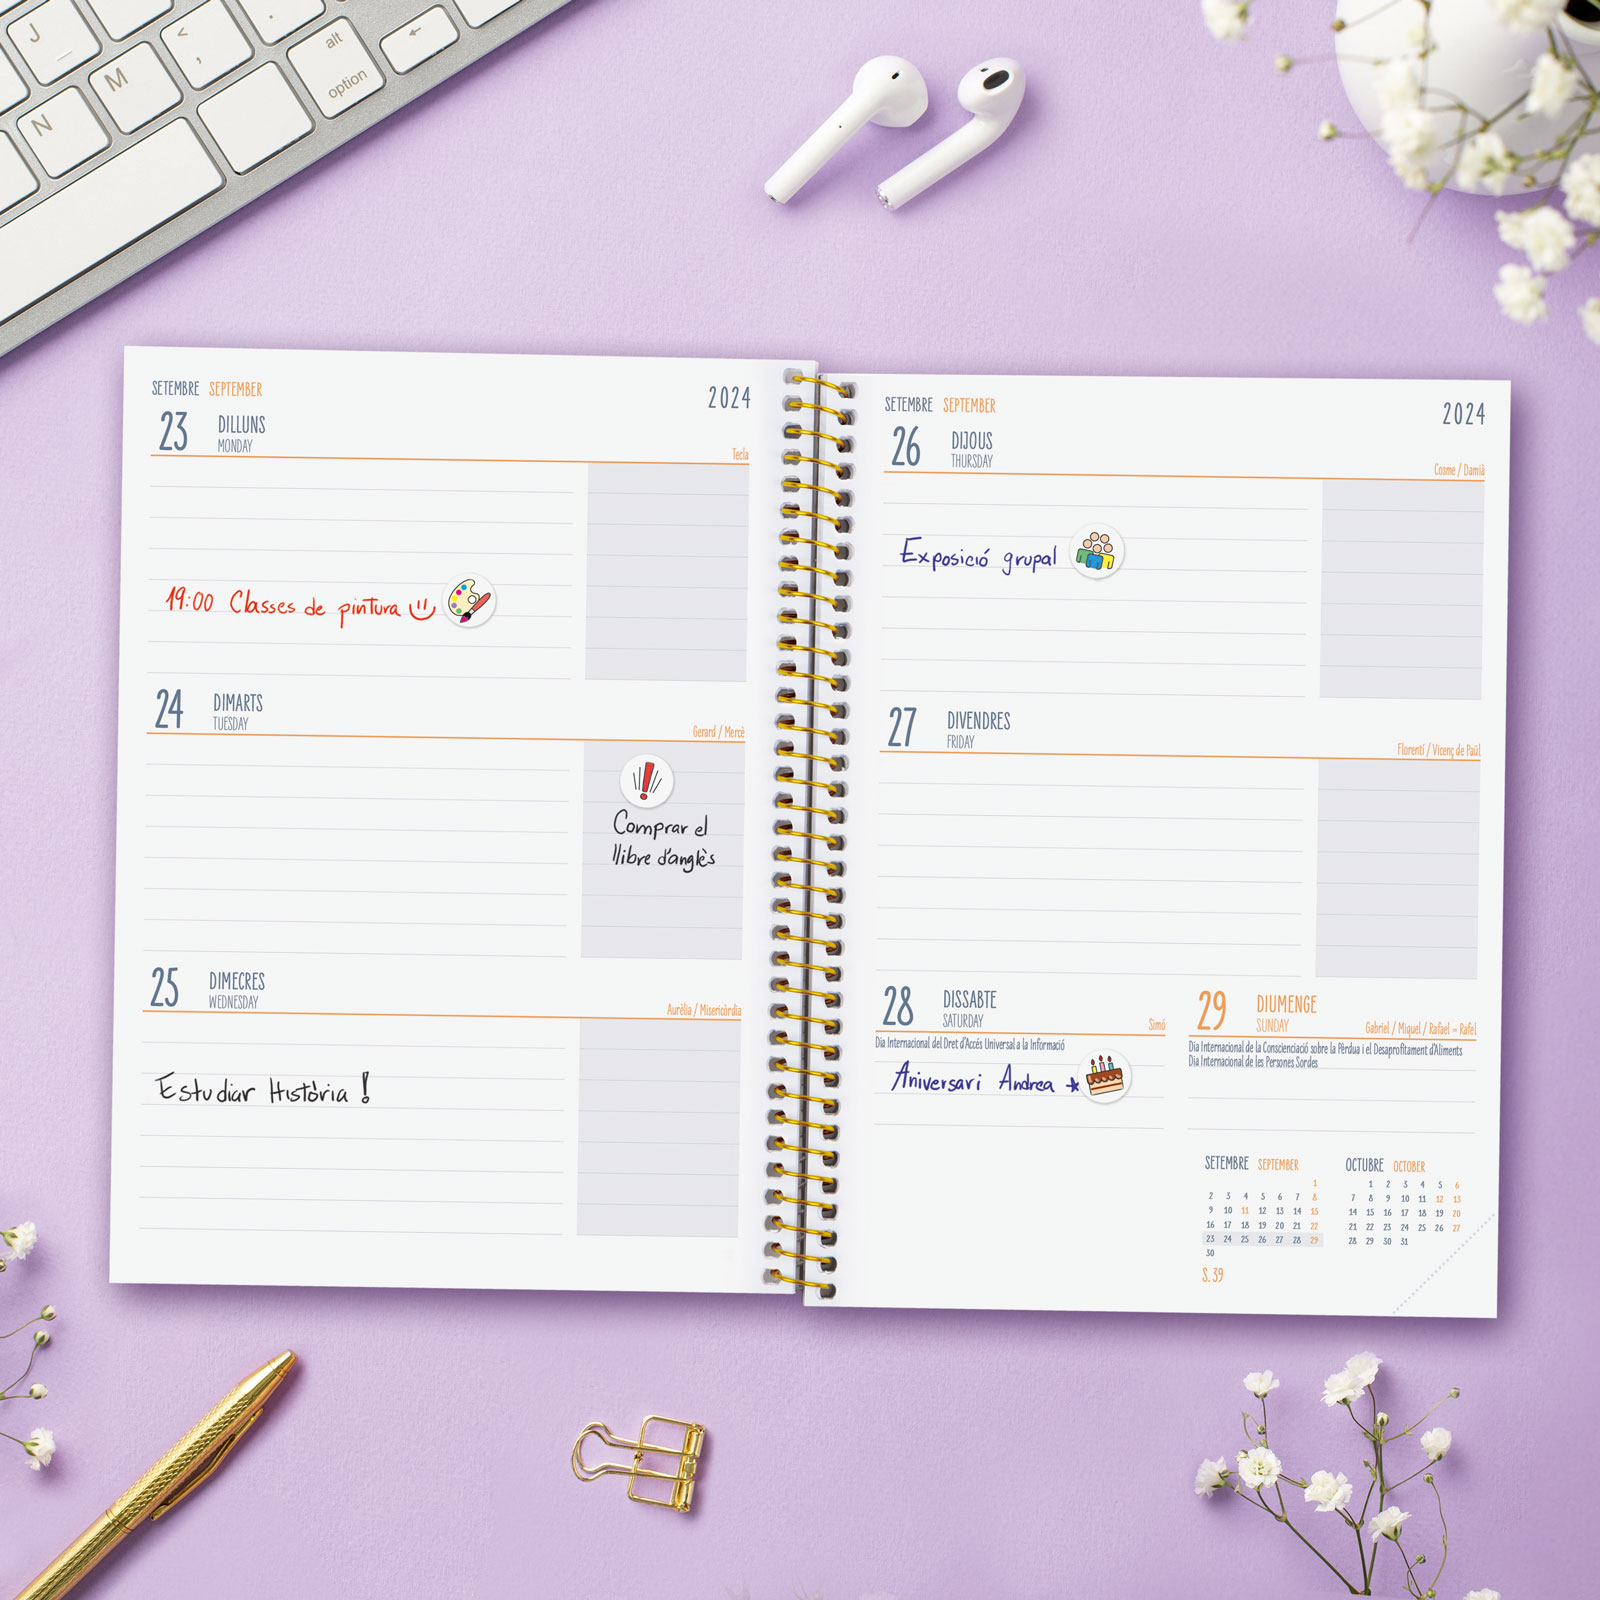 J
<
,
alt
option
M
N
SETEMBRE SEPTEMBER
2024
23 DILLUNS
MONDAY
Tecla
19:00 Classes de pintura
24 DIMARTS
TUESDAY
Gerard / Mercè
Comprar el
llibre d'anglès
25 DIMECRES
WEDNESDAY
Aurèlia / Misericòrdia
Estudiar Història !
SETEMBRE SEPTEMBER
2024
26 DIJOUS
THURSDAY
Cosme / Damià
Exposició grupal
27 DIVENDRES
FRIDAY
Florentí / Vicenç de Paül
28 DISSABTE
SATURDAY
Simó
Dia Internacional del Dret d'Accés Universal a la Informació
Aniversari Andrea
29 DIUMENGE
SUNDAY
Gabriel / Miquel / Rafael - Rafel
Dia Internacional de la Conscienciació sobre la Pèrdua i el Desaprofitament d'Aliments
Dia Internacional de les Persones Sordes
SETEMBRE SEPTEMBER
1
2 3 4 5 6 7 8
9 10 11 12 13 14 15
16 17 18 19 20 21 22
23 24 25 26 27 28 29
30
S. 39
OCTUBRE OCTOBER
1 2 3 4 5 6
7 8 9 10 11 12 13
14 15 16 17 18 19 20
21 22 23 24 25 26 27
28 29 30 31